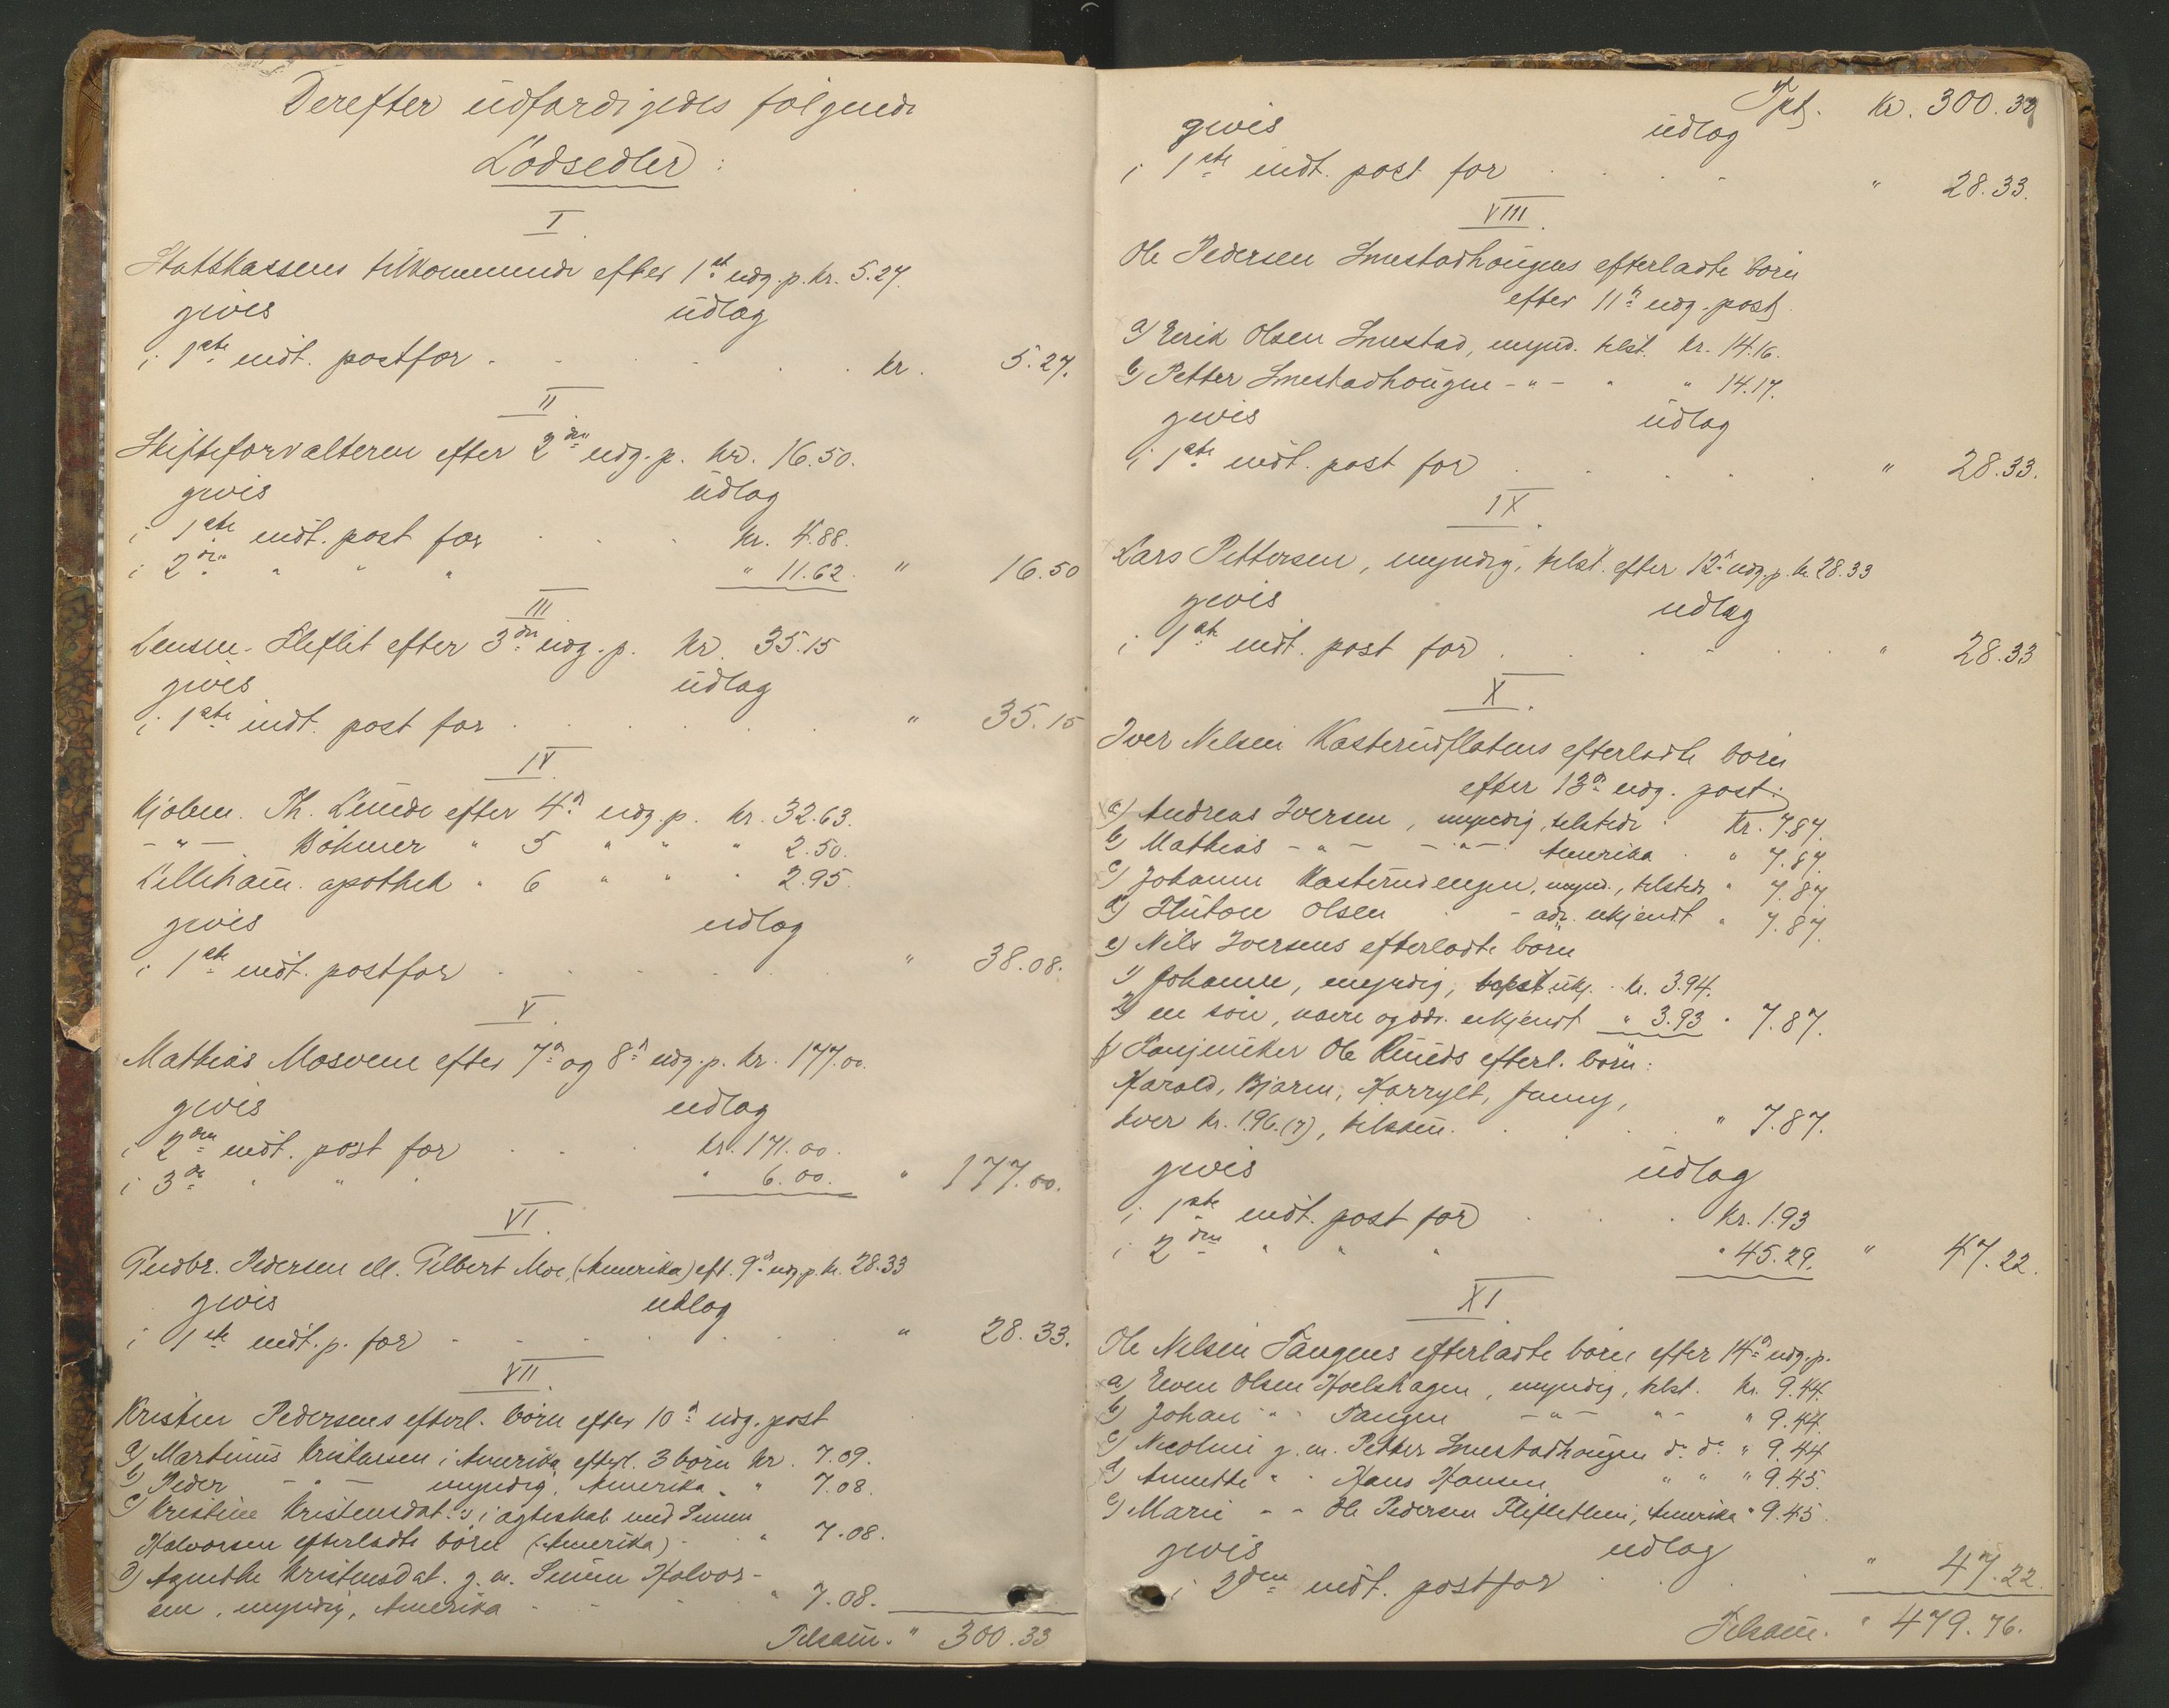 Derefter udfærdigedes følgende
Lodsedler:
I
Statskassens tilkommende efter 1ste udg. p. kr. 5.27.
gives udlæg
i 1ste indt. post for kr. 5.27.
II
Skifteforvalteren efter 2den udg. p. kr. 16.50.
gives udlæg
i 1ste indt. post for kr. 4.88.
i 2den " " " " 11.62. " 16.50
III
Lensm. Fleflit efter 3die udg. p. kr. 35.15
gives udlæg
i 1ste indt. post for " 35.15
IV
Kjøbm. Th. Lunde efter 4de udg. p. kr. 32.63.
- " - Bøhmer " 5 " " " 2.50.
Lilleham. apothek " 6 " " " 2.95.
gives udlæg
i 1ste indt. post for " 38.08.
V
Mathias Mosveen efter 7de og 8de udg. p. kr. 177.00.
gives udlæg
i 2den indt. post for kr. 171.00.
i 3die " " " " 6.00. " 177.00.
VI.
Gudbr. Pedersen ell. Gilbert Moe, (Amerika) eft. 9de udg. p. kr. 28.33
gives udlæg
i 1ste indt. p. for " 28.33.
VII.
Kristen Pedersens efterl. børn efter 10de udg. post
a) Martinus Kristiansen i Amerika efterl. 3 børn kr. 7.09.
b) Peder - " - myndig, Amerika " 7.08.
c) Kristine Kristensdat.s i ægteskab med Simen
Halvorsen efterladte børn (Amerika) " 7.08.
d) Agnethe Kristensdat. g. m. Simen Halvor-
sen, myndig, Amerika " 7.08.
Tilsam. " 300.33
Tpt. kr. 300.33
gives udlæg
i 1ste indt. post for " 28.33.
VIII.
Ole Pedersen Smestadhaugens efterladte børn
efter 11te udg. post
a) Eirik Olsen Smestad, mynd. tilst. kr. 14.16.
b) Petter Smestadhaugen - " - " " 14.17.
gives udlæg
i 1ste indt. post for " 28.33.
IX.
Lars Pettersen, myndig, tilst. efter 12te udg. p. kr. 28.33
gives udlæg
i 1ste indt. post for " 28.33
X.
Iver Nilsen Kasterudflatens efterladte børn
efter 13de udg. post:
a) Andreas Iversen, myndig, tilstede kr. 7.87.
b) Mathias - " - - " - Amerika " 7.87.
c) Johanne Kasterudengen, mynd., tilstede " 7.87.
d) Olsen - adr. ukjendt " 7.87.
e) Nils Iversens efterladte børn
1) Johanne, myndig, ukj. kr. 3.94.
2) en søn, navn og adr. ukjendt " 3.93 " 7.87.
f) Ole Ruuds efterl. børn:
Harald, Bjarne, Jenny,
hver kr. 1.96.(7), tilsam. " 7.87.
gives udlæg
i 1ste indt. post for kr. 1.93
i 2den " " " " 45.29. " 47.22.
XI.
Ole Nilsen Tangens efterladte børn efter 14de udg. p.
a) Even Olsen Hoelshagen, myndig, tilst. kr. 9.44.
b) Johan " " Tangen - " - " - " 9.44.
c) Nicoline g. m. Petter Smestadhaugen do. do. " 9.44
d) Annette " " Hans Hansen " " " 9.45.
e) Marie - - Ole Pedersen Fleflethen, Amerika " 9.45.
gives udlæg
i 2den indt. post for " 47.22.
Tilsam. " 479.76.